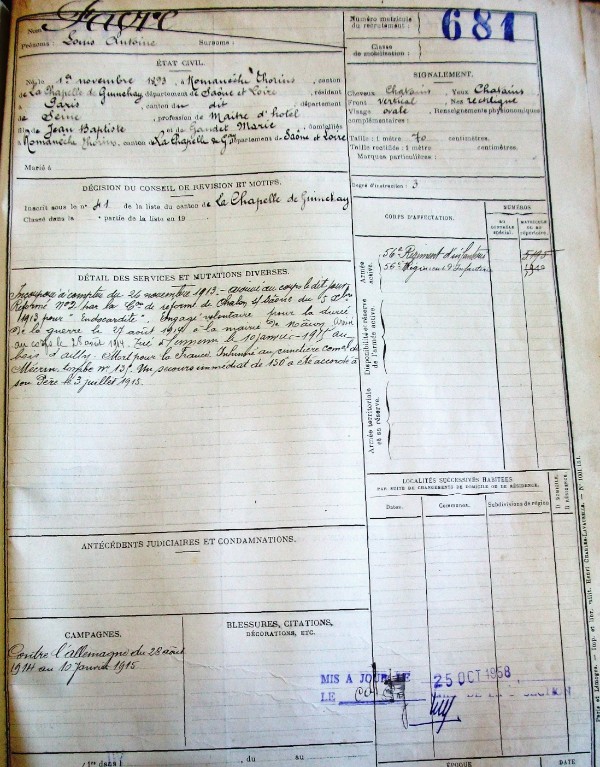 Nom
Prénoms : Louis Antoine Surnoms :
Numéro matricule
du recrutement :
681
Classe
de mobilisation :
ÉTAT CIVIL.
Né le 1er novembre 1893, à Romanèche Thorins, canton
de La Chapelle de Guinchay, département de Saône et Loire, résidant
à Paris canton du dit, département
de Seine, profession de Maître d'hôtel
fils de Jean Baptiste et de Gandet Marie, domiciliés
à Romanèche Thorins, canton de La Chapelle de Gay, département de Saône et Loire
Marié à
SIGNALEMENT.
Cheveux Chatains Yeux Chatains
Front vertical Nez rectiligne
Visage ovale Renseignements physionomiques
complémentaires :
Taille : 1 mètre 70 centimètres.
Taille rectifiée : 1 mètre centimètres.
Marques particulières :
Degré d'instruction : 3
DÉCISION DU CONSEIL DE RÉVISION ET MOTIFS.
Inscrit sous le n° 41 de la liste du canton de La Chapelle de Guinchay
Classé dans la partie de la liste en 19
CORPS D'AFFECTATION.
NUMÉROS
AU
CONTRÔLE
spécial.
MATRICULE
OU AU
répertoire.
Armée
active.
56e Régiment d'infanterie
56e Régiment d'Infanterie
Disponibilité et réserve
de l'armée active.
Armée territoriale
et sa réserve.
DÉTAIL DES SERVICES ET MUTATIONS DIVERSES.
Incorporé à compter du 26 novembre 1913 - arrivé au corps le dit jour
Réformé N°2 par la Con de réforme de Chalon s/ Saône du 5
1913 pour "Endocardite". Engagé volontaire pour la durée
de la guerre le 27 août 1914 à la mairie de Mâcon. Arrivé
au corps le 28 août 1914. Tué à l'ennemi le 10 janvier 1915 au
bois d'Ailly. Mort pour la France. Inhumé au cimetière comal de
Mécrin, tombe n° 13. Un secours immédiat de 150 a été accordé à
son Père le 3 juillet 1915.
LOCALITÉS SUCCESSIVES HABITÉES
PAR SUITE DE CHANGEMENTS DE DOMICILE OU DE RÉSIDENCE.
Dates. Communes. Subdivisions de région. D. DOMICILE. R. RÉSIDENCE.
ANTÉCÉDENTS JUDICIAIRES ET CONDAMNATIONS.
CAMPAGNES.
Contre l'Allemagne du 28 août
1914 au 10 janvier 1915
BLESSURES, CITATIONS,
DÉCORATIONS, ETC.
MIS A JOUR LE 25 OCT 1968
LE
du au
ÉPOQUE DATE